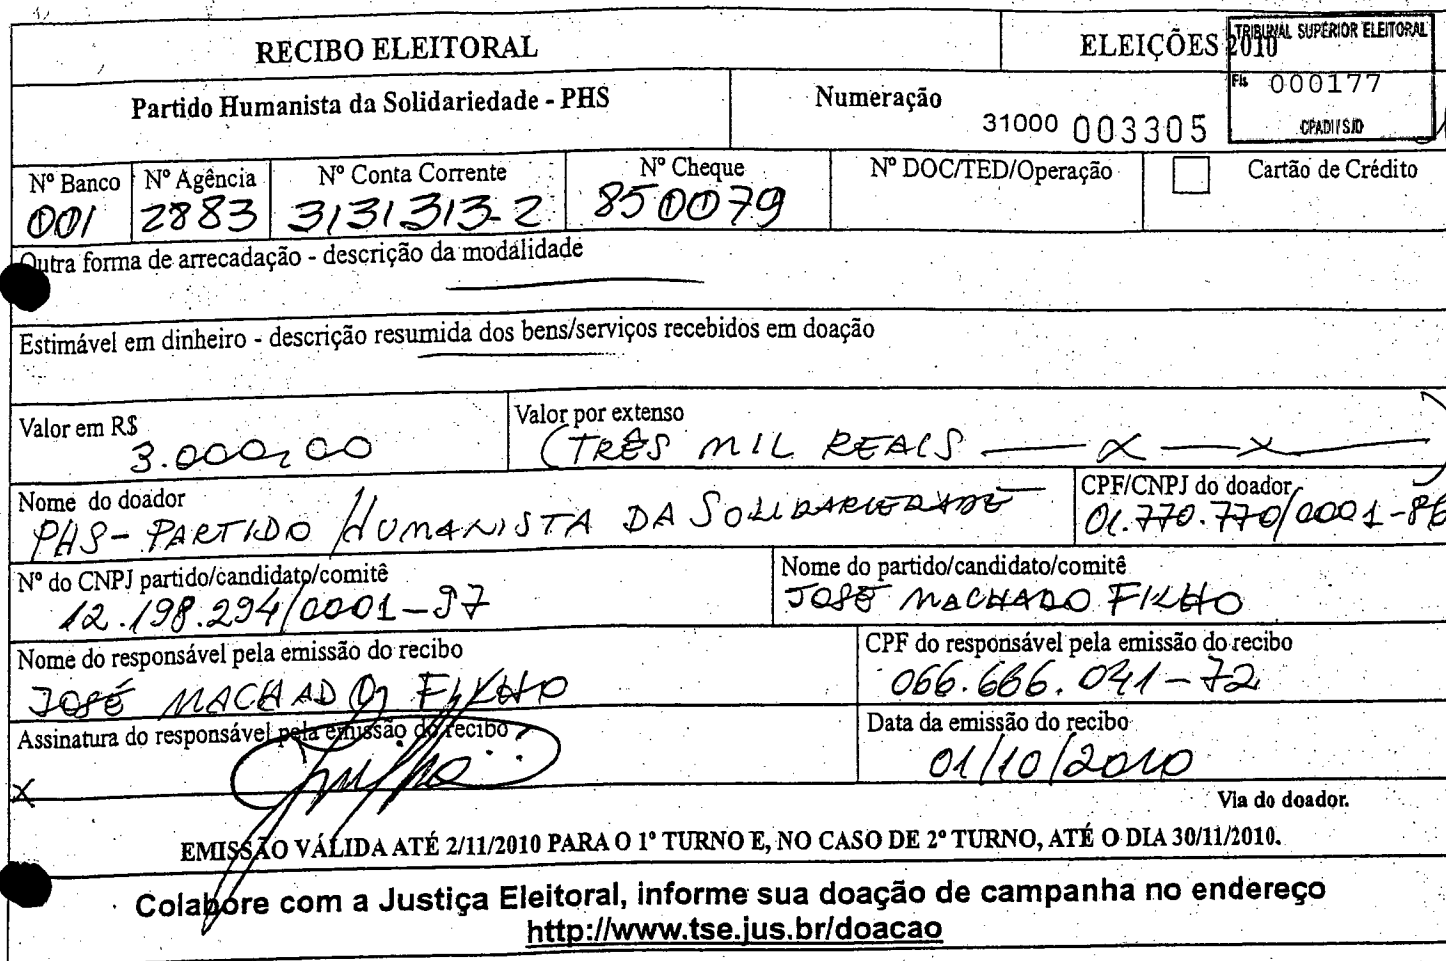 RECIBO ELEITORAL
ELEIÇÕES 2010
TRIBUNAL SUPERIOR ELEITORAL
Fls 000177
CPADI/SJD
Partido Humanista da Solidariedade - PHS
Numeração
31000 003305
Nº Banco Nº Agência Nº Conta Corrente Nº Cheque Nº DOC/TED/Operação Cartão de Crédito
001 2883 3131313-2 850079
Outra forma de arrecadação - descrição da modalidade
Estimável em dinheiro - descrição resumida dos bens/serviços recebidos em doação
Valor em R$ Valor por extenso
3.000,00 (TRÊS MIL REAIS — x — x — )
Nome do doador CPF/CNPJ do doador
PHS - PARTIDO HUMANISTA DA SOLIDARIEDADE 01.770.770/0001-86
Nº do CNPJ partido/candidato/comitê Nome do partido/candidato/comitê
12.198.294/0001-97 JOSÉ MACHADO FILHO
Nome do responsável pela emissão do recibo CPF do responsável pela emissão do recibo
JOSÉ MACHADO FILHO 066.666.041-72
Assinatura do responsável pela emissão do recibo Data da emissão do recibo
x 01/10/2010
Via do doador.
EMISSÃO VÁLIDA ATÉ 2/11/2010 PARA O 1º TURNO E, NO CASO DE 2º TURNO, ATÉ O DIA 30/11/2010.
Colabore com a Justiça Eleitoral, informe sua doação de campanha no endereço
http://www.tse.jus.br/doacao